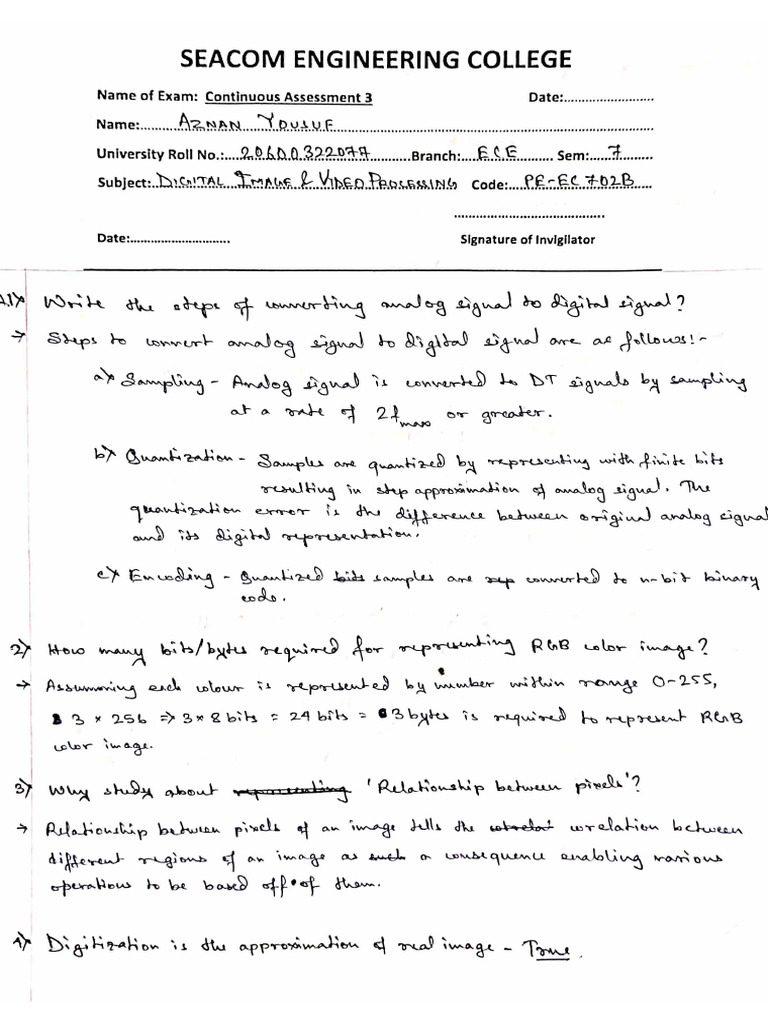 SEACOM ENGINEERING COLLEGE
Name of Exam: Continuous Assessment 3 Date:..........................
Name: AZNAN YOUSUF
University Roll No.: 20600322077 Branch: ECE Sem: 7
Subject: DIGITAL IMAGE & VIDEO PROCESSING Code: PE-EC 702B
Date:............................. Signature of Invigilator
1) Write the steps of converting analog signal to digital signal?
→ Steps to convert analog signal to digital signal are as follows:-
a) Sampling - Analog signal is converted to DT signals by sampling
at a rate of 2fmax or greater.
b) Quantization - Samples are quantized by representing with finite bits
resulting in step approximation of analog signal. The
quantization error is the difference between original analog signal
and its digital representation.
c) Encoding - Quantized bits samples are rep converted to n-bit binary
code.
2) How many bits/bytes required for representing RGB color image?
→ Assumming each colour is represented by number within range 0-255,
3 × 256 ⇒ 3 × 8 bits = 24 bits = 3 bytes is required to represent RGB
color image.
3) Why study about representing 'Relationship between pixels'?
→ Relationship between pixels of an image tells the correlation between
different regions of an image as such a consequence enabling various
operations to be based off of them.
4) Digitization is the approximation of real image - True.